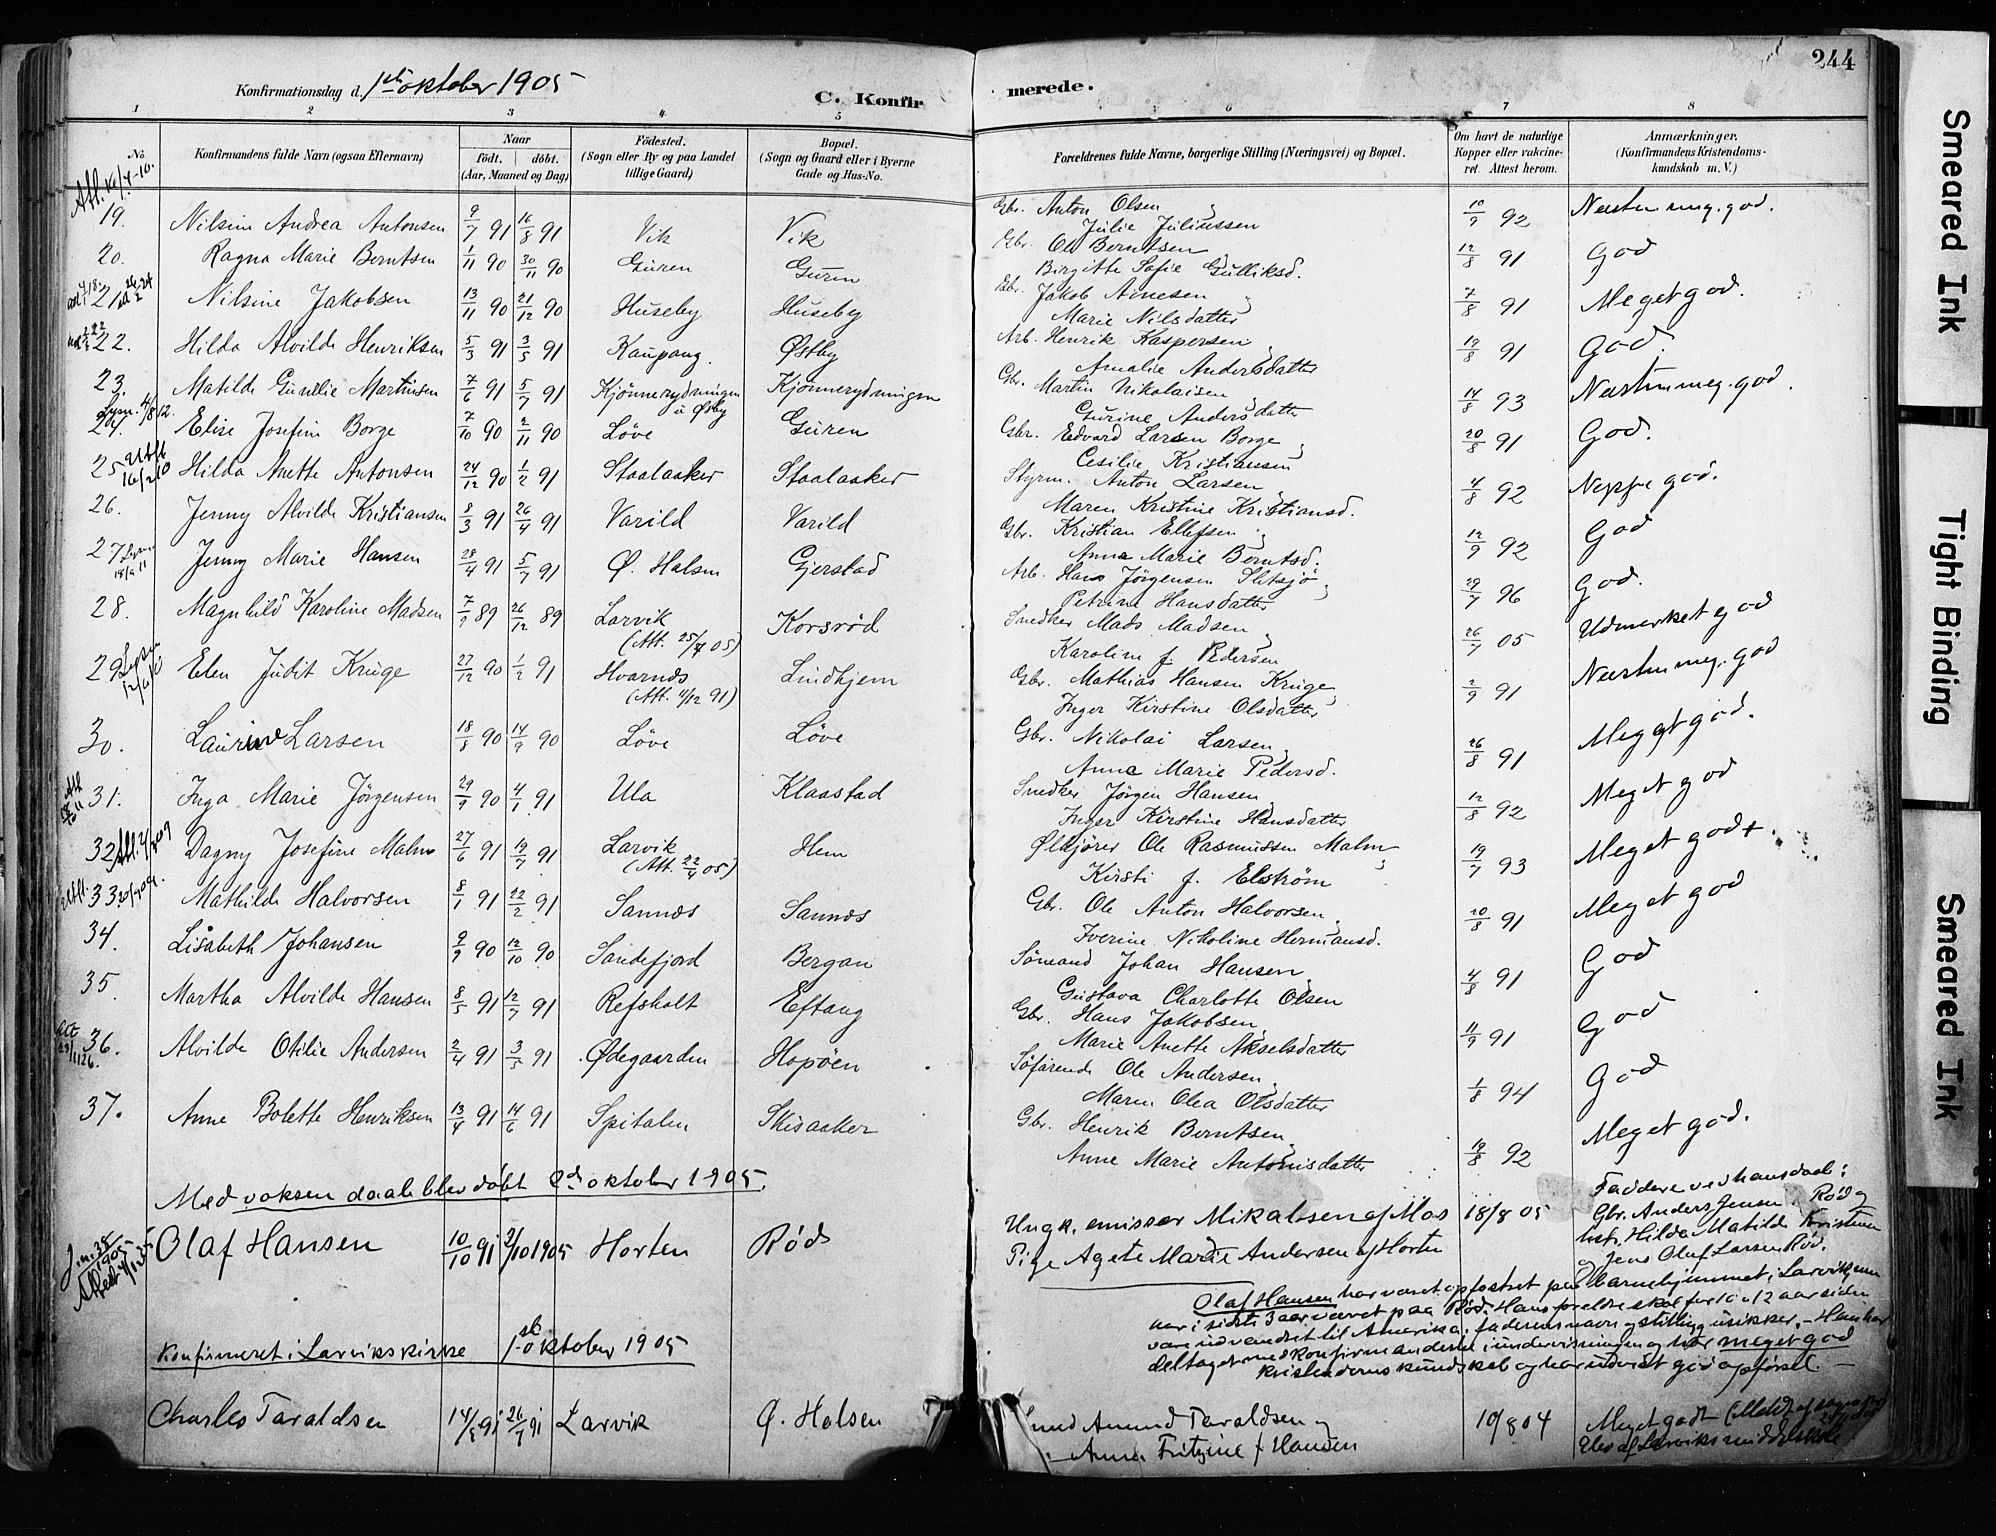 244
Konfirmationsdag d. 1ste oktober 1905
C. Konfirmerede.
1 2 3 4 5 6 7 8
No.
Konfirmandens fulde Navn (ogsaa Efternavn)
Naar
födt. döbt.
(Aar, Maaned og Dag)
Födested.
(Sogn eller By og paa Landet tillige Gaard)
Bopæl.
(Sogn og Gaard eller i Byerne Gade og Hus-No.
Forældrenes fulde Navne, borgerlige Stilling (Næringsvei) og Bopæl.
Om havt de naturlige Kopper eller vakcineret. Attest herom.
Anmærkninger.
(Konfirmandens Kristendomskundskab m. V.)
19. Nilsine Andrea Antonsen 9/7 91 16/8 91 Vik Vik Gbr. Anton Olsen, 10/9 92 Næsten meg. god.
Julie Juliussen
20. Ragna Marie Berntsen 1/11 90 30/11 90 Guren Guren Gbr. Ole Berntsen 12/8 91 God
Birgitte Sofie Gulliksd.
21 Nilsine Jakobsen 13/11 90 21/12 90 Huseby Huseby Gbr. Jakob Arnesen, 7/8 91 Meget god.
Marie Nilsdatter
22. Hilda Alvilde Henriksen 5/3 91 3/5 91 Kaupang. Østby Arb. Henrik Kaspersen, 19/8 91 God.
Amalie Andersdatter
23. Matilde Gunelie Martinsen 7/6 91 5/7 91 Kjønnerydningen u Østby Kjønnerydningen Gbr. Martin Nikolaisen 14/8 93 Næsten meg. god.
Gurine Andersdatter
24. Elise Josefine Borge 7/10 90 2/11 90 Løve Guren Gbr. Edvard Larsen Borge, 20/8 91 God.
Cesilie Kristiansen
25 Hilda Anette Antonsen 24/12 90 1/2 91 Staalaaker Staalaaker Styrm. Anton Larsen, 4/8 92 Neppe god.
Maren Kristine Kristiansd.
26. Jenny Alvilde Kristiansen 8/3 91 26/4 91 Varild Varild Gbr. Kristian Ellefsen, 12/9 92 God
Anna Marie Berntsd.
27 Jenny Marie Hansen 28/4 91 5/7 91 Ø. Halsen Gjerstad Arb. Hans Jørgensen Sletsjø, 29/7 96 God.
Petrine Hansdatter
28. Magnhild Karoline Madsen 7/9 89 26/12 89 Larvik (Att. 25/7 05) Korsrød Snedker Mads Madsen, 26/7 05 Udmerket god
Karoline f. Pedersen
29 Elen Judit Kruge 27/12 90 1/2 91 Hvarnes (Att. 11/12 91) Lindhjem Gbr. Mathias Hansen Kruge, 2/9 91 Næsten meg. god
Inger Kirstine Olsdatter
30. Laurine Larsen 18/8 90 14/9 90 Løve Løve Gbr. Nikolai Larsen, 26/8 91 Meget god.
Anna Marie Pedersd.
31. Inga Marie Jørgensen 29/9 90 4/1 91 Ula Klaastad Snedker Jørgen Hansen, 12/8 92 Meget god
Inger Kirstine Hansdatter
32 Dagny Josefine Malm 27/6 91 19/7 91 Larvik (Att. 22/4 05) Hem Ølkjører Ole Rasmussen Malm, 19/7 93 Meget god+.
Kirsti f. Elstrøm
33 Mathilde Halvorsen 8/1 91 22/2 91 Sannes Sannes Gbr. Ole Anton Halvorsen, 20/8 91 Meget god
Iverine Nikoline Hermansd.
34. Lisabeth Johansen 9/9 90 12/10 90 Sandefjord Bergan Sømand Johan Hansen 4/8 91 God
Gustava Charlotte Olsen
35. Martha Alvilde Hansen 8/5 91 12/7 91 Refsholt Eftang Gbr. Hans Jakobsen, 11/9 91 God
Marie Anette Akselsdatter
36. Alvilde Otilie Andersen 2/4 91 3/5 91 Ødegaarden Hopøen Søfarende Ole Andersen, 1/8 94 God
Maren Olea Olsdatter
37. Anne Bolette Henriksen 13/4 91 14/6 91 Spitalen Skisaaker Gbr. Henrik Berntsen, 19/8 92 Meget god.
Anne Marie Antonisdatter
Med voksen daab blev døbt 2den oktober 1905.
Olaf Hansen 10/10 91 2/10 1905 Horten Røds Ungk. emissær Mikalssen af Mos 18/8 05
Pige Agete Marie Andersen af Horten
Faddere ved hans daab:
Gbr. Anders Jensen Rød og
hstr. Hilda Matilde Kristensen
og Jens Olaf Larsen Rød.
Olaf Hansen har været opfostret paa Barnehjemmet i Larvik, men
har i sidste 3 aar været paa Rød. Hans foreldre skal for 10 a 12 aar siden
være udvandret til Amerika; faderens navn og stilling usikker. – Han har
deltaget med konfirmanderne i undervisningen og har meget god
kristendomskundskab og har udvist god opførsel. –
Konfirmeret i Larviks kirke 1ste oktober 1905
Charles Taraldsen 14/8 91 26/9 91 Larvik Ø. Halsen Smed Amund Taraldsen og 10/8 04 Meget godt
Anna Fritzine f Hansen Elev af Larviks middelskole
Smeared Ink
Tight Binding
Smeared Ink